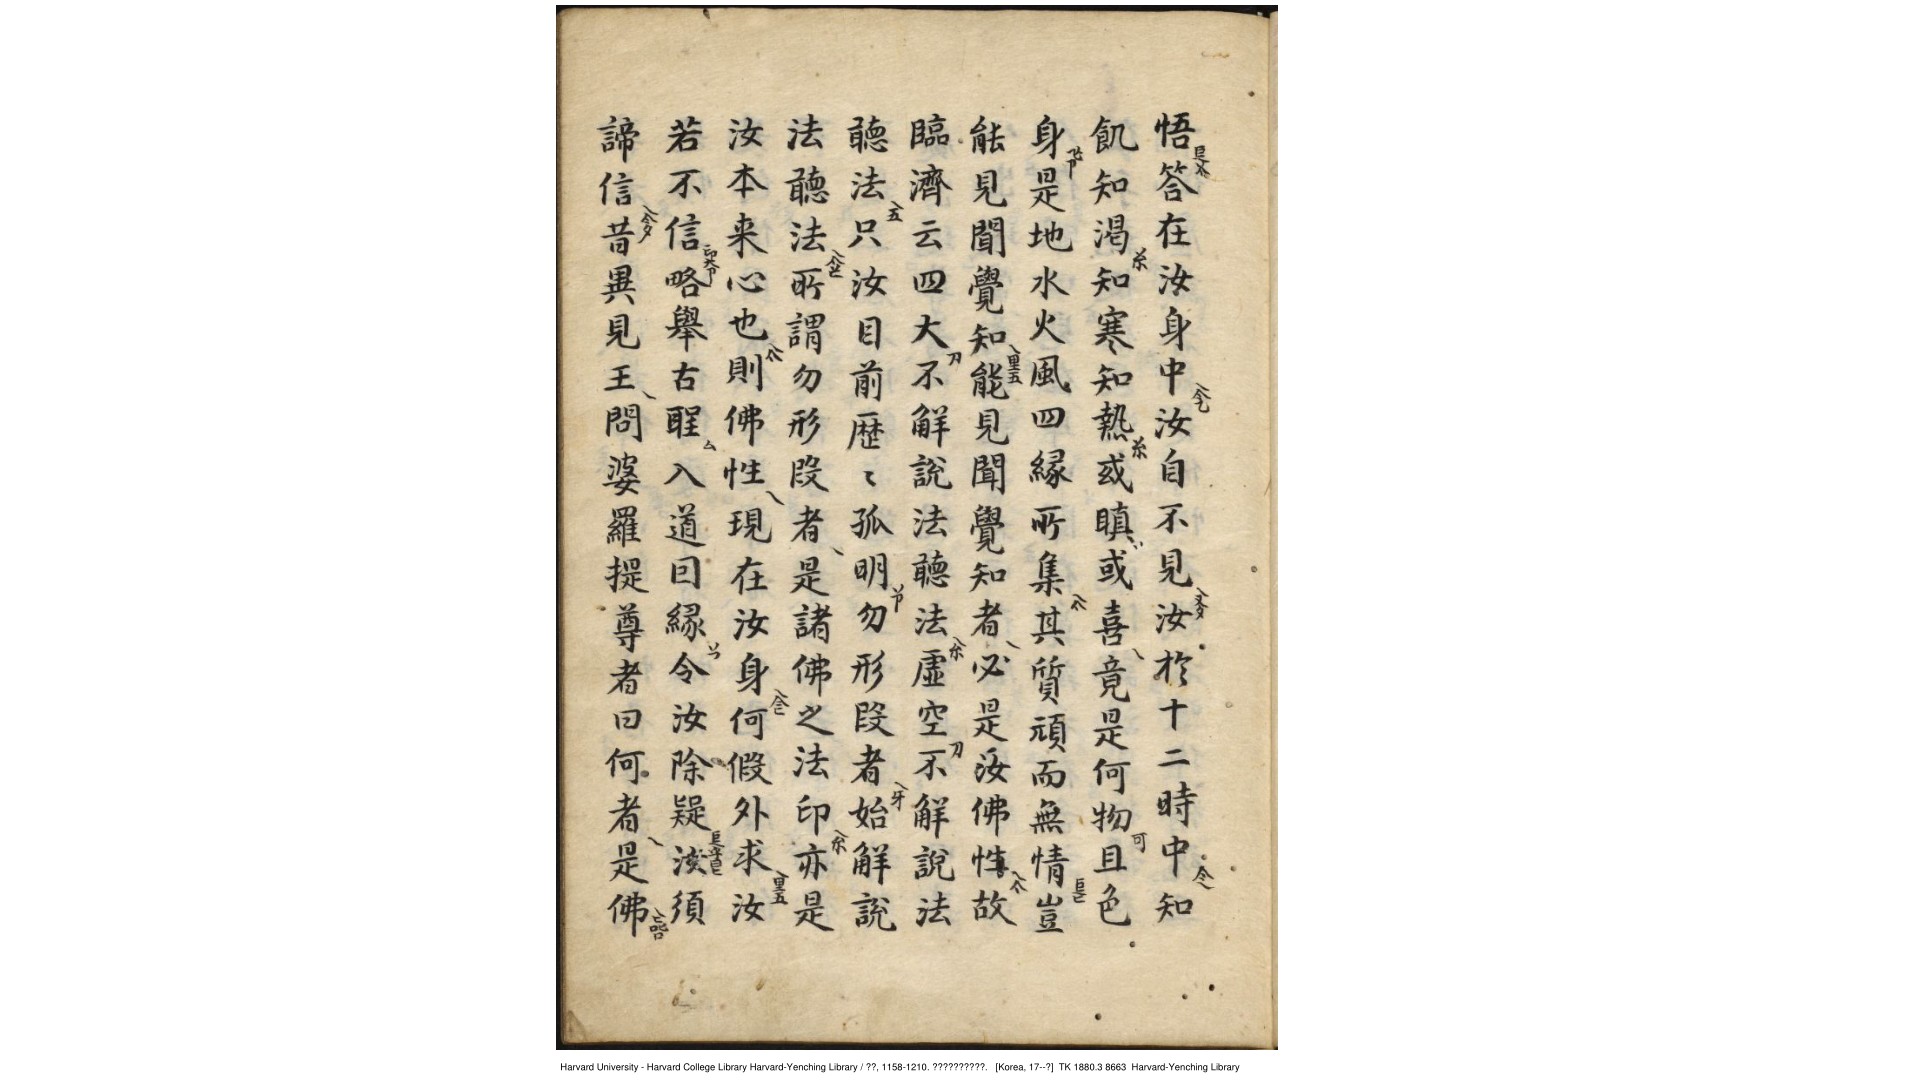 悟答在汝身中汝自不見汝於十二時中知
飢知渴知寒知熱或瞋或喜竟是何物且色
身是地水火風四緣所集其質頑而無情豈
能見聞覺知能見聞覺知者必是汝佛性故
臨濟云四大不解說法聽法虛空不解說法
聽法只汝目前歷〻孤明勿形段者始解說
法聽法所謂勿形段者是諸佛之法印亦是
汝本来心也則佛性現在汝身何假外求汝
若不信略舉古聖入道因緣令汝除疑汝須
諦信昔異見王問婆羅提尊者曰何者是佛
Harvard University - Harvard College Library Harvard-Yenching Library / ??, 1158-1210. ??????????. [Korea, 17--?] TK 1880.3 8663 Harvard-Yenching Library